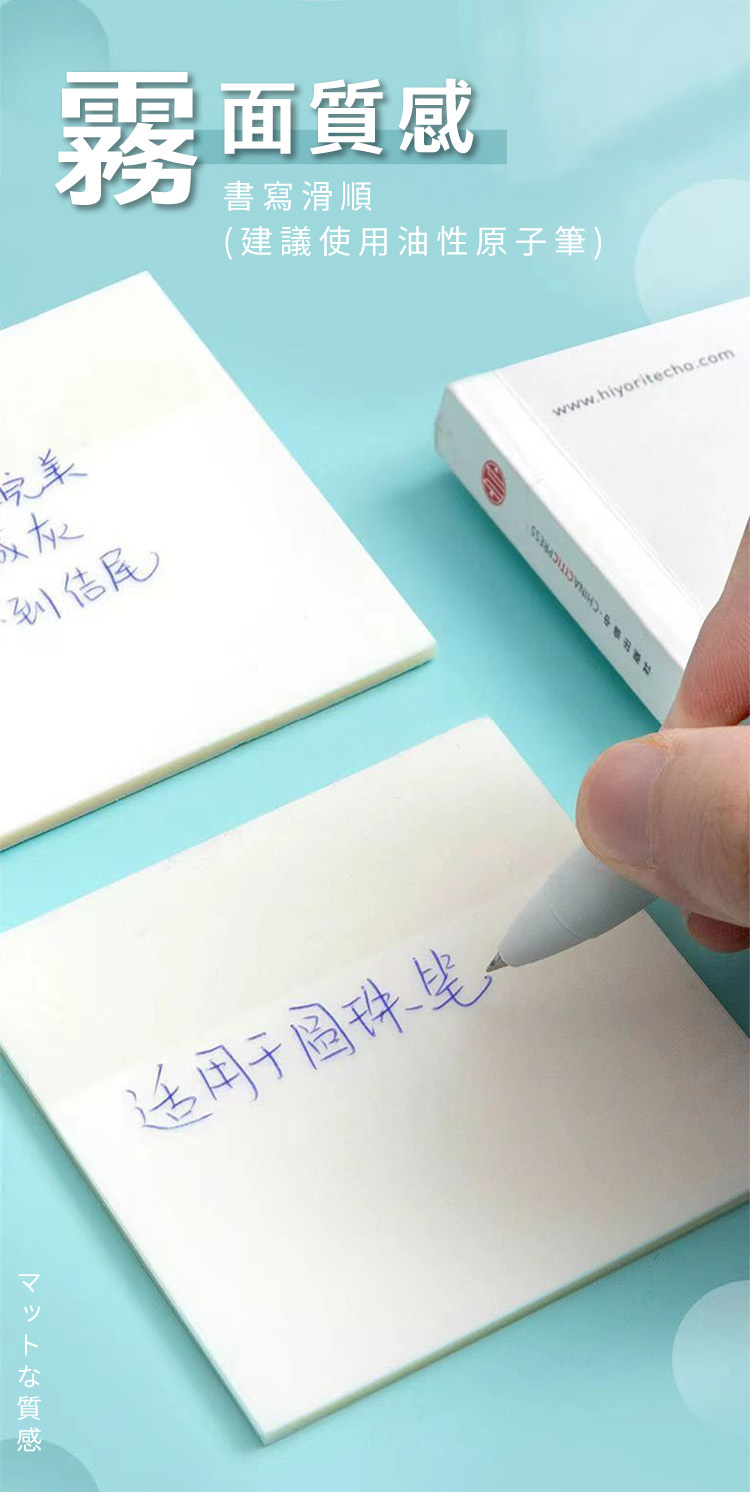 霧面質感
書寫滑順
(建議使用油性原子筆)
www.hiyoritecho.com
CHINACITICPRESS
完美
灰
到结尾
适用于圆珠笔
マットな質感